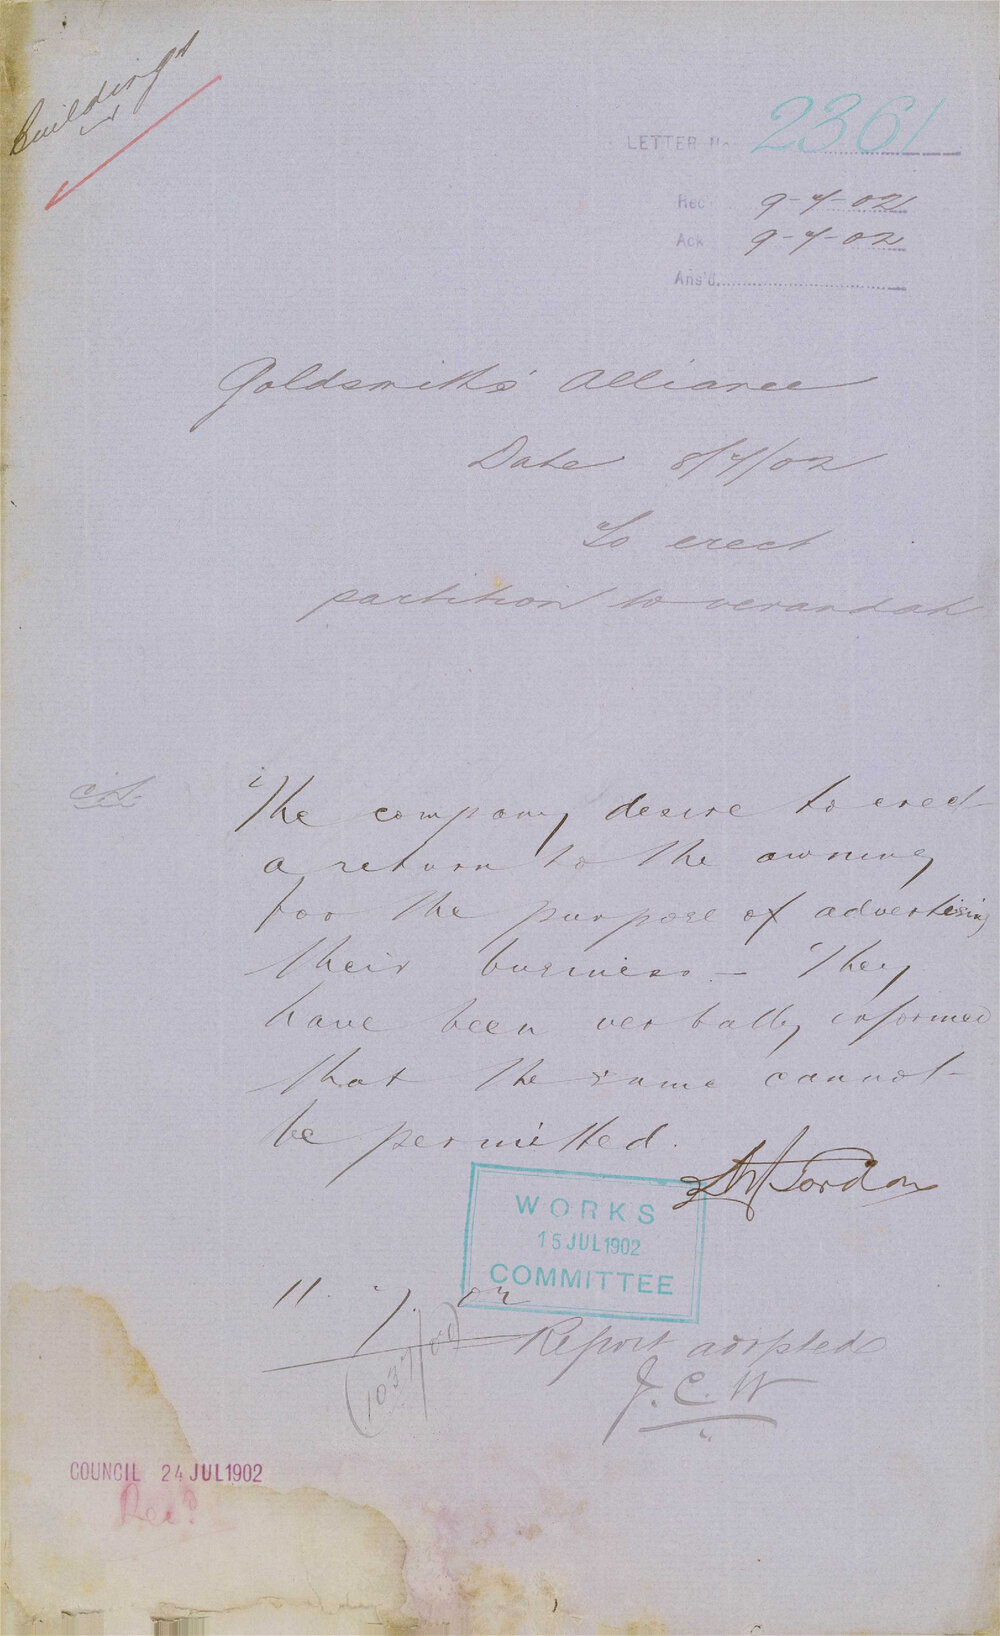 Buildings
LETTER No 2361
Rec'd 9-7-02
Ack 9-7-02
Ans'd
Goldsmiths' Alliance
Date 8/7/02
To erect
partition to verandah
The company desire to erect
a return to the awning
for the purpose of advertising
their business - They
have been verbally informed
that the same cannot
be permitted.
Gordon
WORKS
15 JUL 1902
COMMITTEE
11. 7. 02
Report adopted
J. C. W
COUNCIL 24 JUL 1902
Rec?